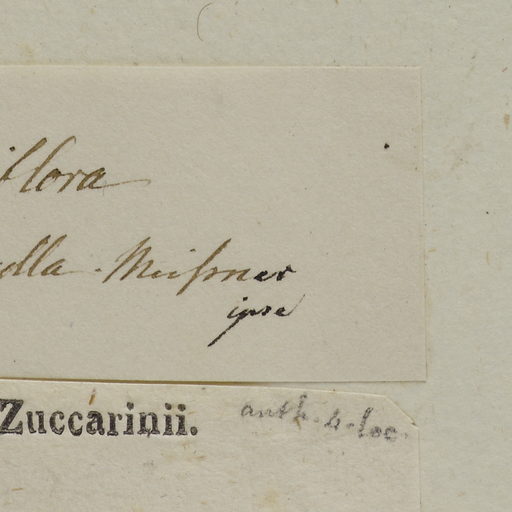 flora
olla. Meißner
ipse
Zuccarinii. anth. 4-loc.